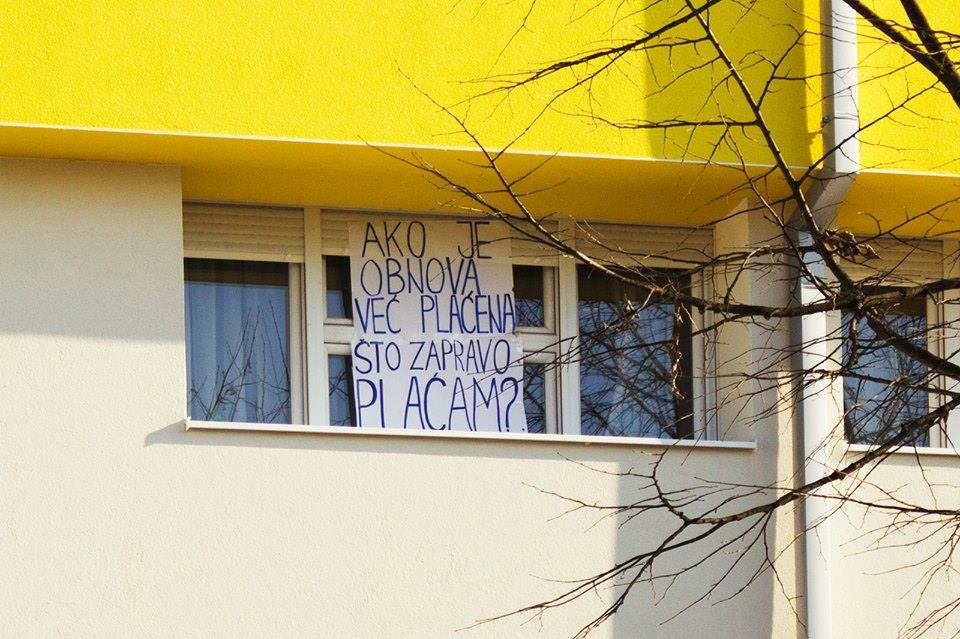 AKO JE
OBNOVA
VEĆ PLAĆENA
ŠTO ZAPRAVO
PLAĆAM?